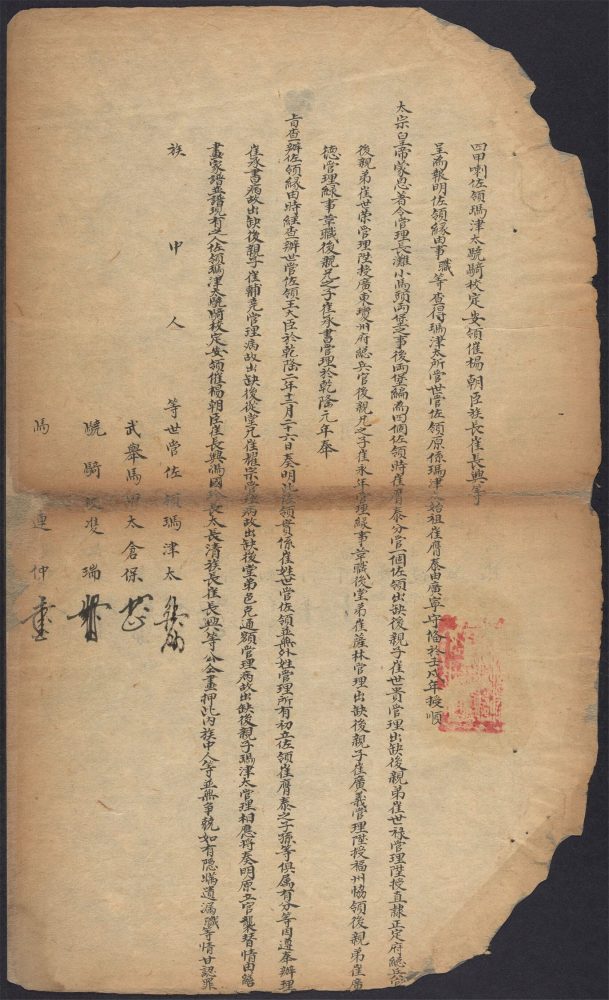 四甲喇佐領瑪津太驍騎校定安領催楊朝臣族長崔長興等
呈為報明佐領緣由事職等查得瑪津太所管世管佐領原係瑪津太始祖崔膺泰由廣寧守備於壬戌年投順
太宗皇帝蒙恩著令管理長灘小馬頭兩堡之事後兩堡編為四個佐領時崔膺泰分管一個佐領出缺後親子崔世貴管理出缺後親弟崔世祿管理陞授直隸正定府總兵官
後親弟崔世榮管理陞授廣東瓊州府總兵官後親兄之子崔永年管理緣事革職後堂弟崔薩林管理出缺後親子崔廣義管理陞授福州協領後親弟崔廣
德管理緣事革職後親兄之子崔承書管理於乾隆元年奉
旨查辦佐領緣由時經查辦世管佐領王大臣於乾隆二年十二月二十六日奏明此佐領實係崔姓世管佐領並無外姓管理所有初立佐領崔膺泰之子孫等俱屬有分等因遵奉辦理
崔承書病故出缺後親子崔輔堯管理病故出缺後從堂兄崔耀宗管理病故出缺後堂弟邑克通額管理病故出缺後親子瑪津太管理相應將奏明原立官襲替情由繕
畫家譜並譜現有之人佐領瑪津太驍騎校定安領催楊朝臣崔長興馮國珍長太長清族長崔長興等公仝畫押此內族中人等並無爭競如有隱瞞遺漏職等情甘認罪
族中人等世管佐領瑪津太
武舉馬甲太倉保
驍騎校雙瑞
馬 連仲